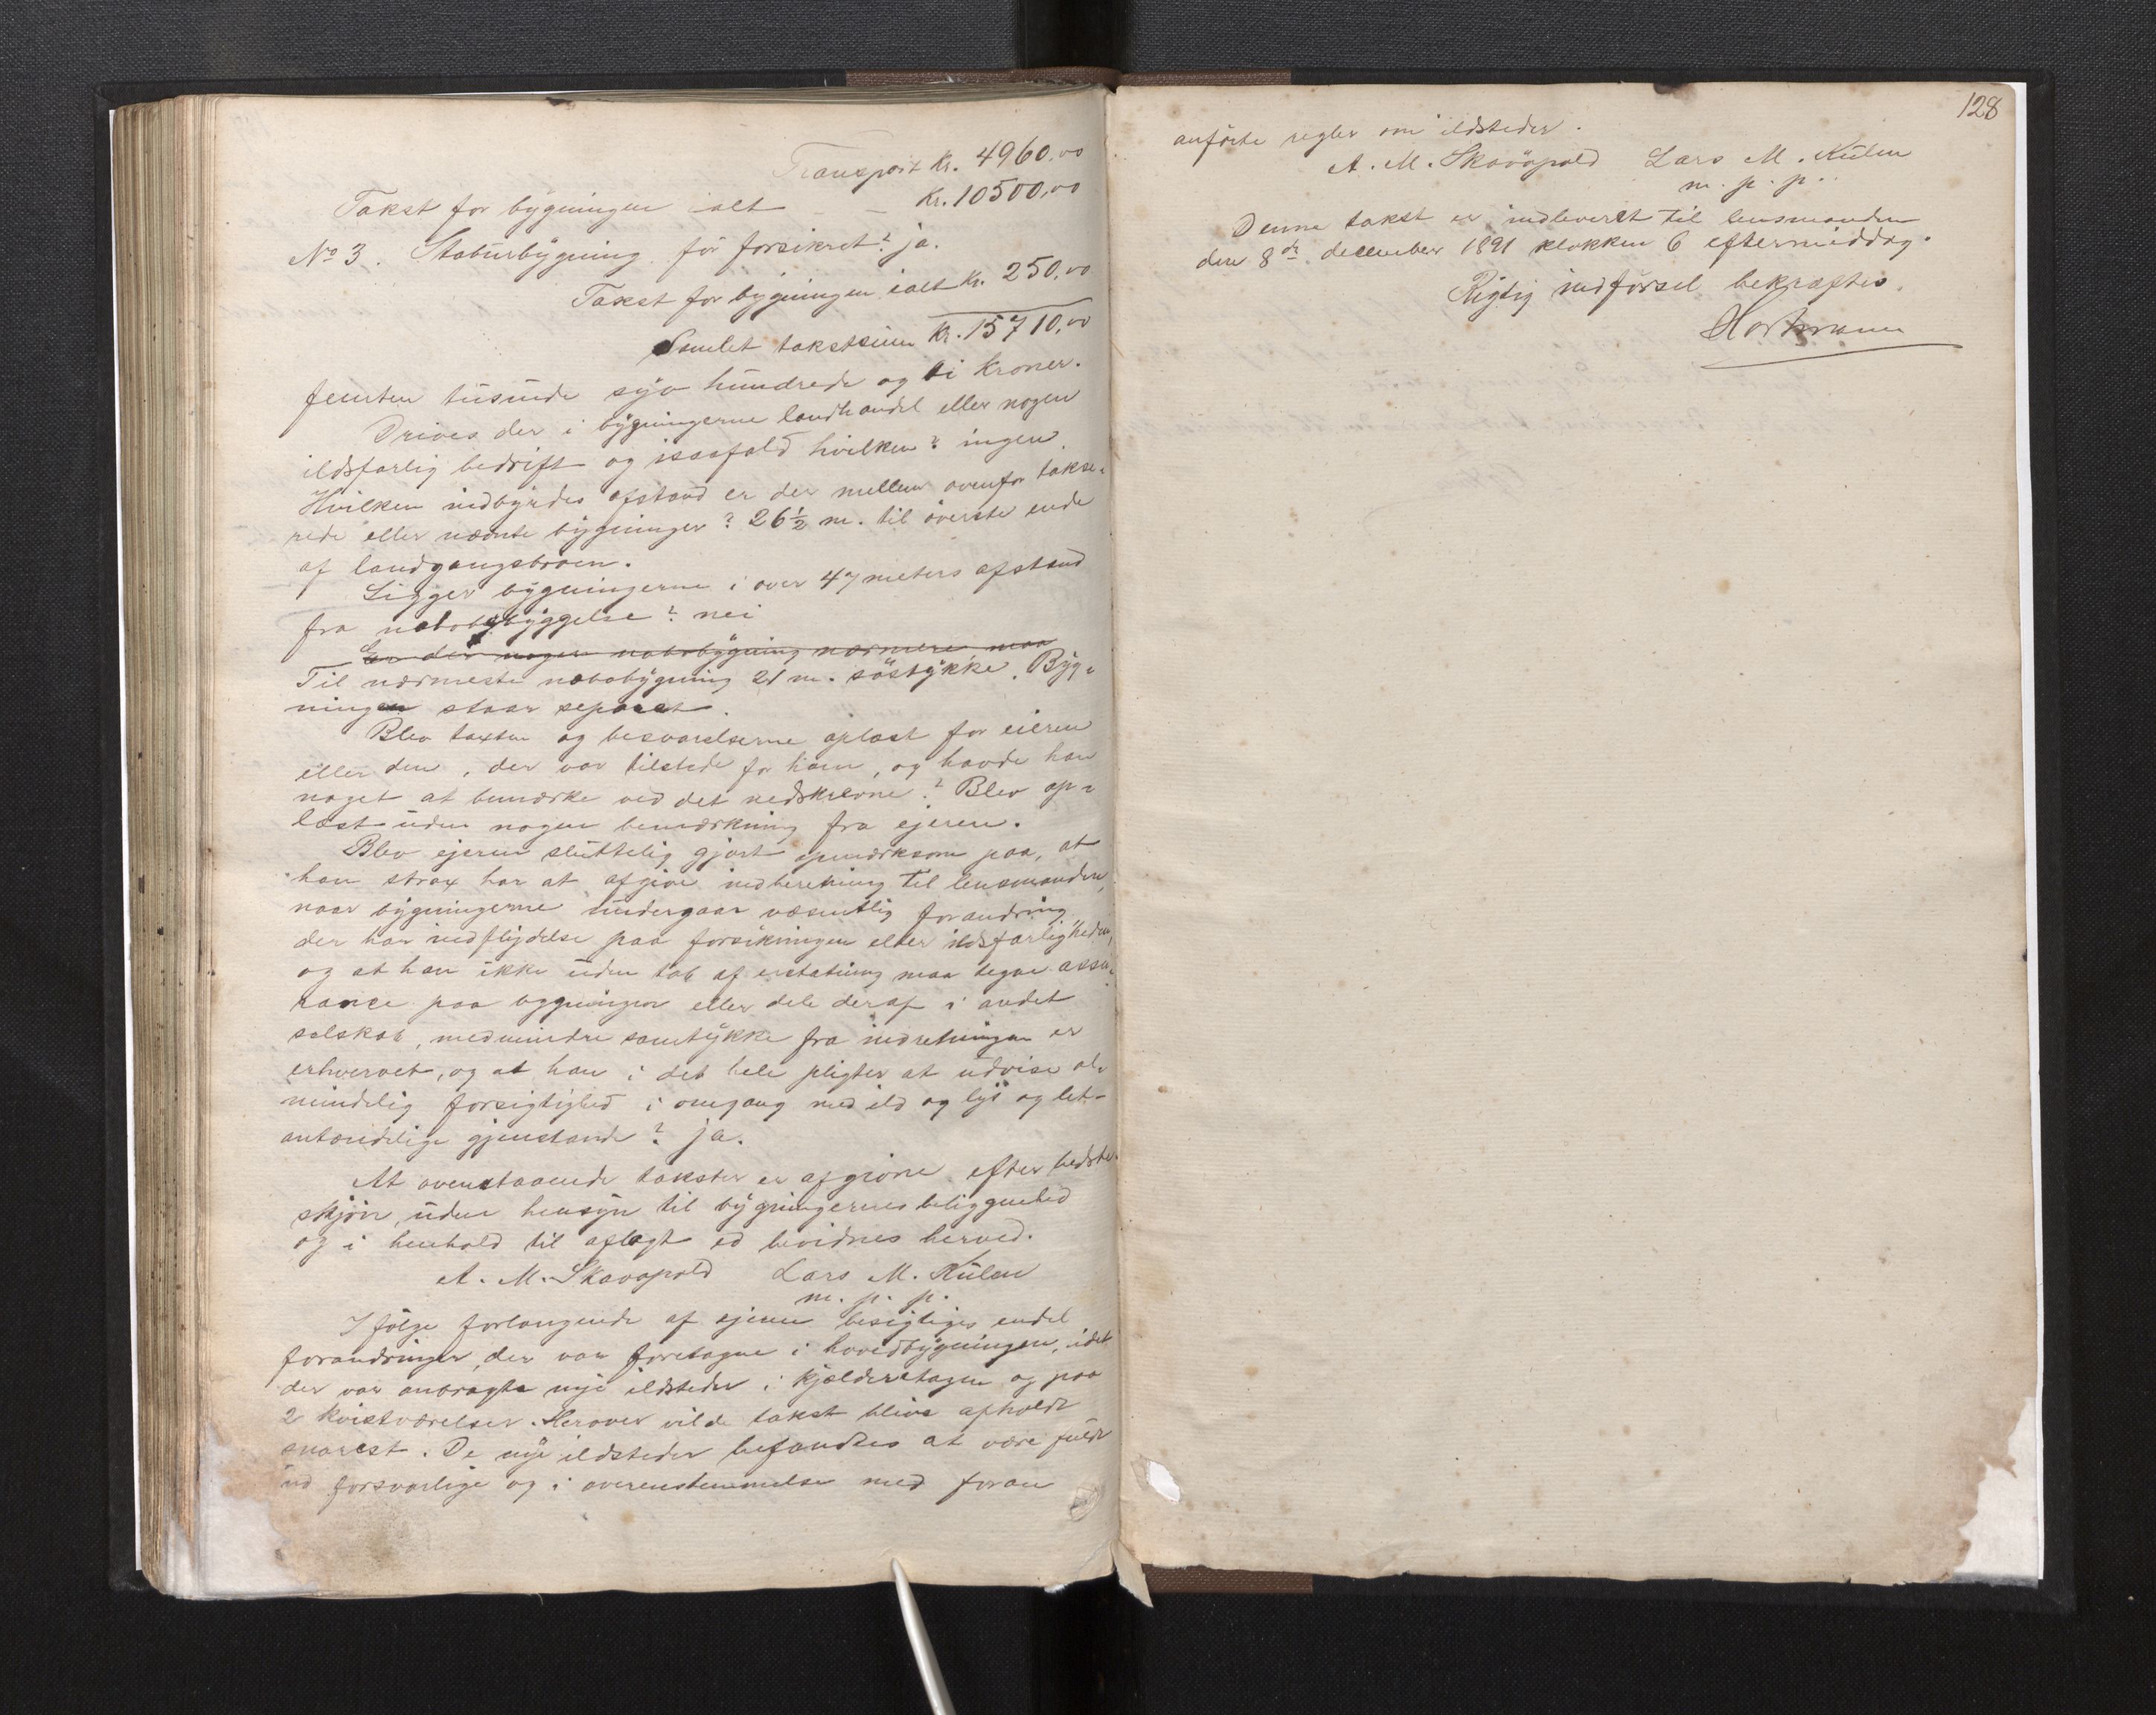 Transport Kr. 4960,00
Takst for bygningen ialt – – Kr. 10500,00
No 3. Stabursbygning før forsikret? ja.
Takst for bygningen ialt Kr. 250,00
Samlet takstsum Kr. 15710,00
femten tusunde syv hundrede og ti kroner.
Drives der i bygningerne landhandel eller nogen
ildsfarlig bedrift og isaafald hvilken? ingen.
Hvilken indbyrdes afstand er der mellem ovenfor takse-
rede eller nævnte bygninger? 26½ m. til øverste ende
af landgangsbroen.
Ligger bygningerne i over 47 meters afstand
fra nabobebyggelse? nei
Er der nogen nabobygning nærmere maa
Til nærmeste nabobygning 21 m. søstykke. Byg-
ningen staar separat.
Blev taxten og besvarelserne oplæst for eieren
eller den, der var tilstede for ham, og havde han
noget at bemærke ved det nedskrevne? Blev op-
læst uden nogen bemærkning fra ejeren.
Blev ejeren sluttelig gjort opmærksom paa, at
han strax har at afgive indberetning til lensmanden,
naar bygningerne undergaar væsentlig forandring,
der har indflydelse paa forsikringen eller ildsfarligheden,
og at han ikke uden tab af erstatning maa tegne assu-
rance paa bygningen eller dele deraf i andet
selskab, medmindre samtykke fra indretningen er
erhvervet, og at han i det hele pligter at udvise al-
mindelig forsigtighed i omgang med ild og lys og let-
antændelige gjenstande? ja.
At ovenstaaende takster er afgivne efter bedste
skjøn, uden hensyn til bygningernes beliggenhed
og i henhold til aflagt ed bevidnes herved.
A. M. Skavøpold Lars M. Kulen
m. p. p.
Ifølge forlangende af ejeren besigtiges endel
forandringer, der var foretagne i hovedbygningen, idet
der var anbragte nye ildsteder i kjælderetagen og paa
2 kvistværelser. Herover vilde takst blive afholdt
snarest. De nye ildsteder befandtes at være fuldt
ud forsvarlige og i overenstemmelse med foran
128
anførte regler om ildsteder.
A. M. Skavøpold Lars M. Kulen
m. p. p.
Denne takst er indleveret til lensmanden
den 8de december 1891 klokken 6 eftermiddag.
Rigtig indførsel bekræftes.
Hartmann